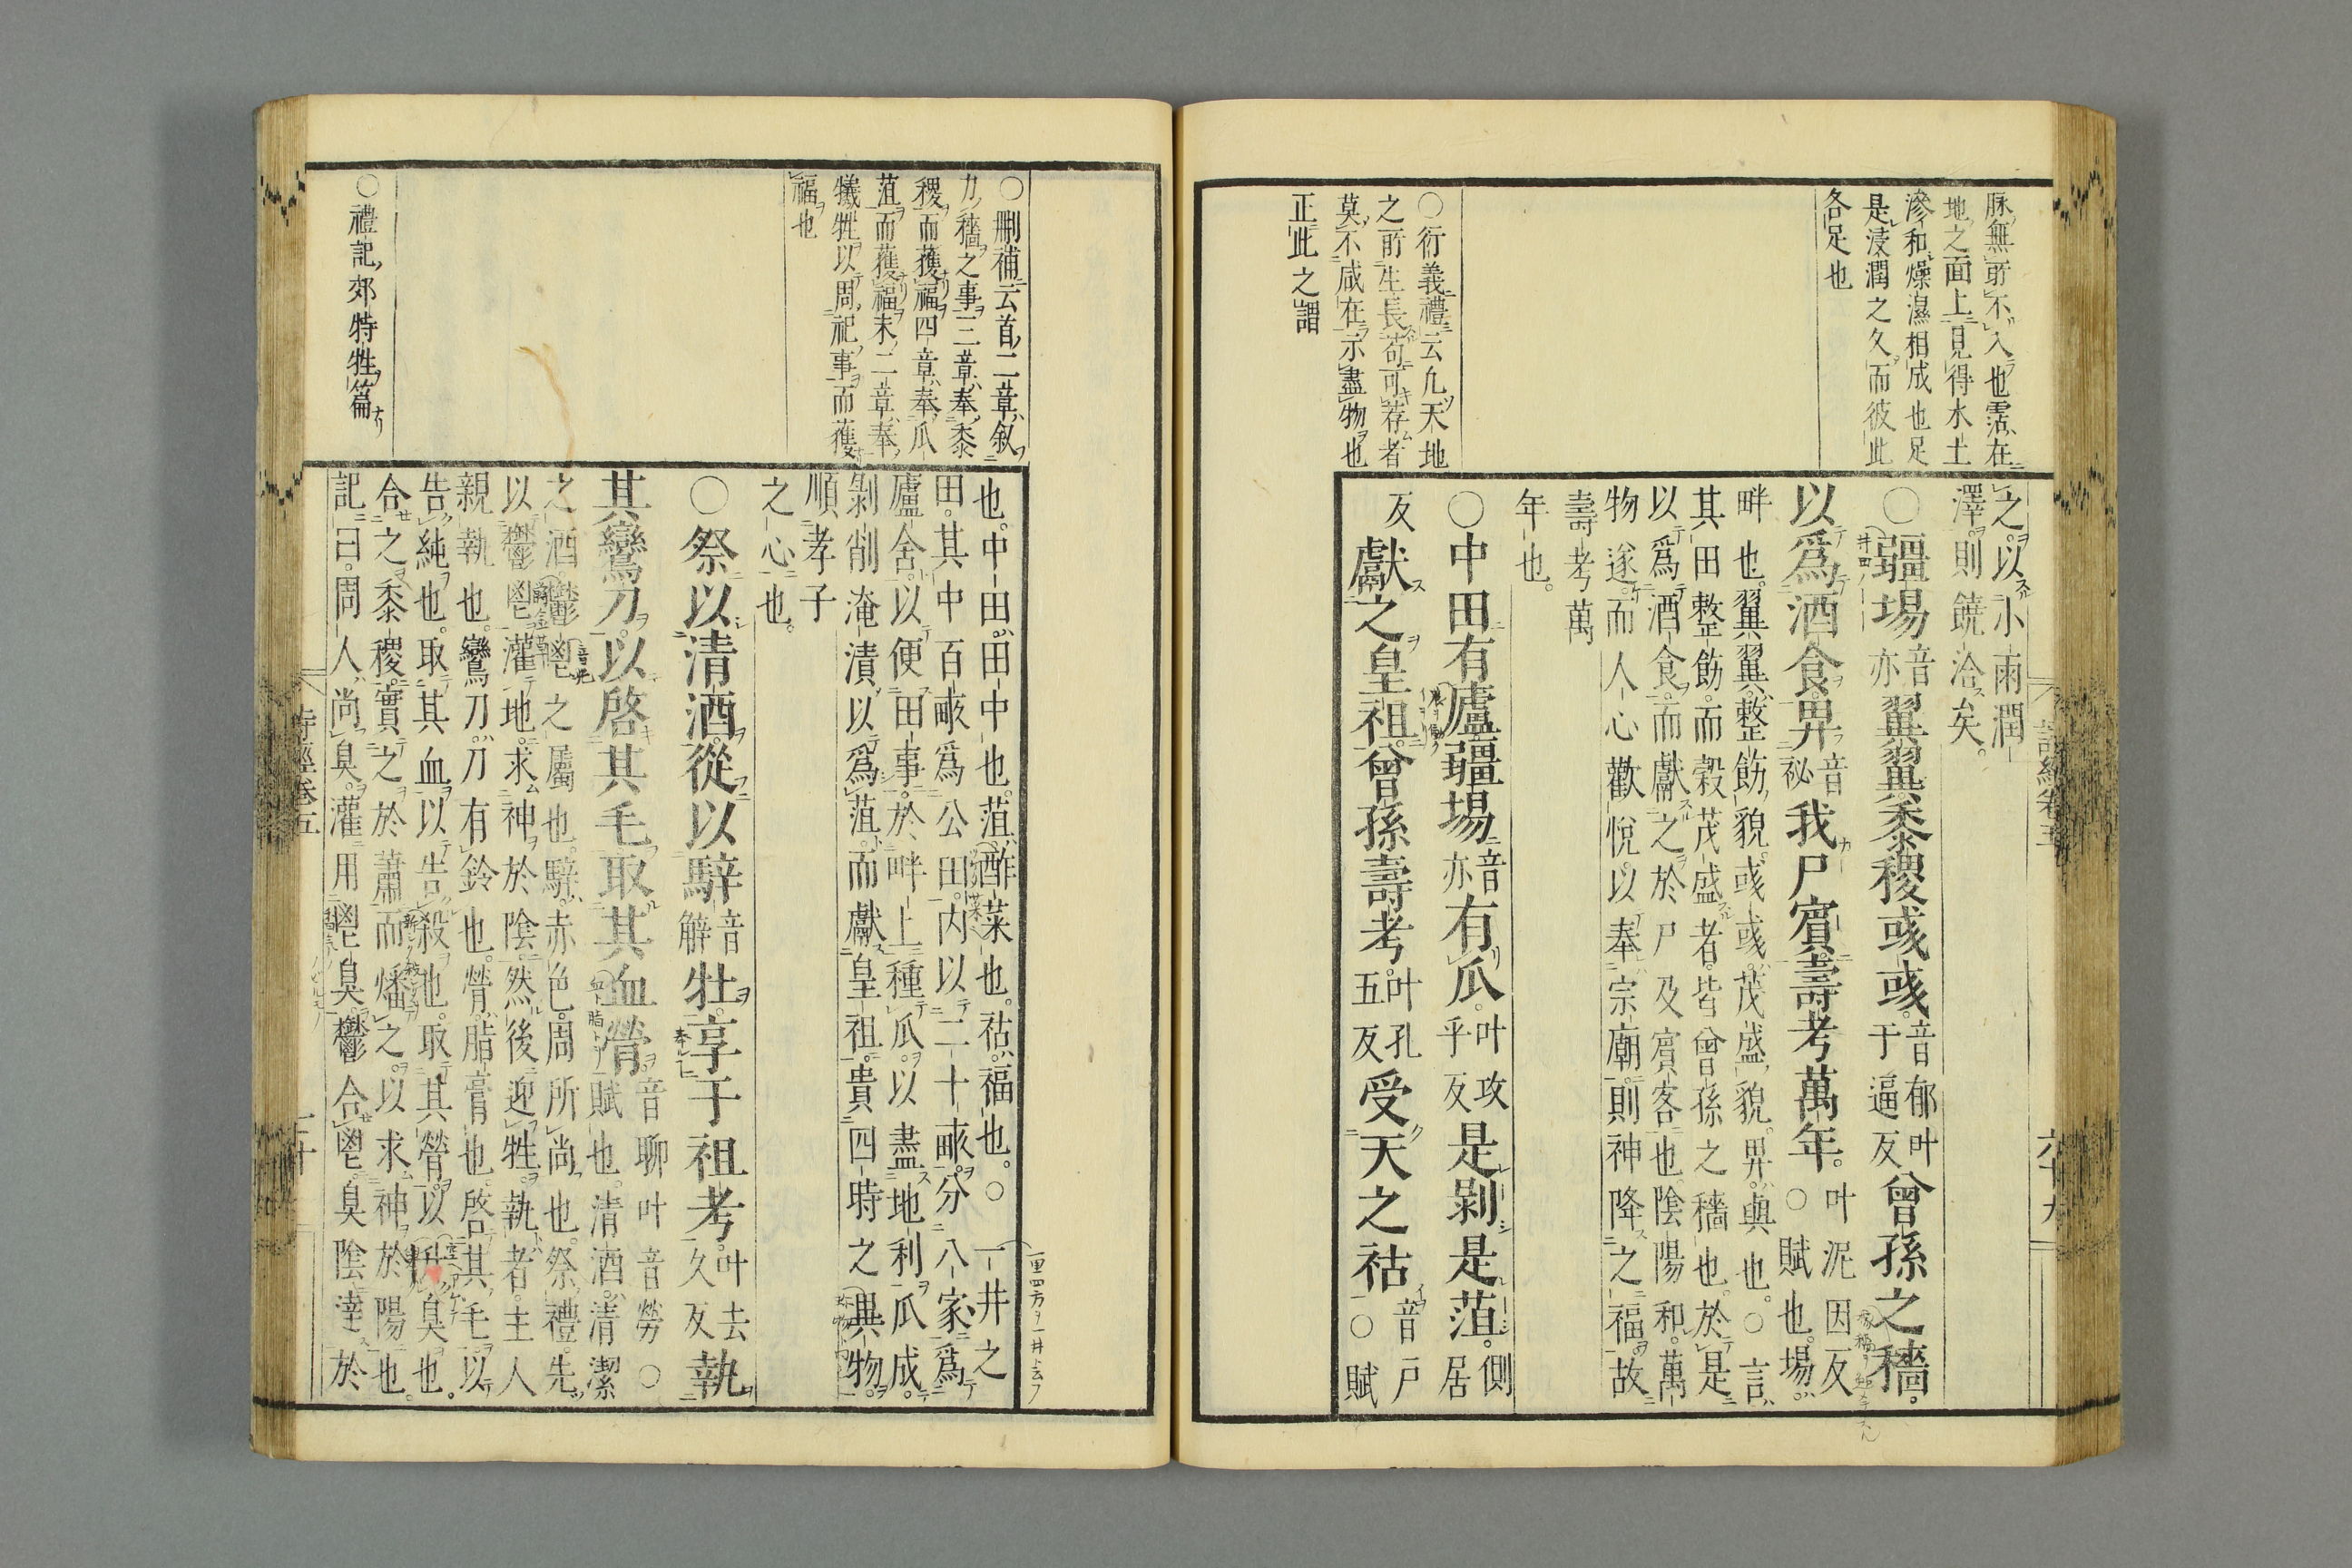 脉無所不入也霑在
地之面上見得水土
滲和燥濕相成也足
是浸潤之久而彼此
各足也
○衍義禮云凡天地
之所生長苟可荐者
莫不咸在示盡物也
正此之謂
之以小雨潤
澤則饒洽矣
○疆埸音亦翼翼黍稷彧彧音郁叶于逼反曾孫之穡
以爲酒食畀音祕我尸賓壽考萬年叶泥因反○賦也埸
畔也翼翼整飭貌彧彧茂盛貌畀與也○言
其田整飭而穀茂盛者皆曾孫之穡也於是
以爲酒食而獻之於尸及賓客也陰陽和萬
物遂而人心歡悅以奉宗廟則神降之福故
壽考萬
年也
○中田有廬疆埸音亦有瓜叶攻乎反是剝是菹側居
反獻之皇祖曾孫壽考叶孔五反受天之祜音戸○賦
詩經卷五
六十九
○刪補云首二章叙
力穡之事三章奉黍
稷而獲福四章奉瓜
菹而獲福末二章奉
犧牲以周祀事而獲
福也
○禮記郊特牲篇
也中田田中也菹酢菜也祜福也○一井之
田其中百畝爲公田内以二十畝分八家爲
廬舍以便田事於畔上種瓜以盡地利瓜成
剝削淹漬以爲菹而獻皇祖貴四時之異物
順孝子
之心也
○祭以清酒從以騂音觪牡享于祖考叶去久反執
其鸞刀以啓其毛取其血膋音聊叶音勞○賦也清酒清潔
之酒鬱鬯之屬也騂赤色周所尚也祭禮先
以鬱鬯灌地求神於陰然後迎牲執者主人
親執也鸞刀刀有鈴也膋脂膏也啓其毛以
告純也取其血以告殺也取其膋以升臭也
合之黍稷實之於蕭而燔之以求神於陽也
記曰周人尚臭灌用鬯臭鬱合鬯臭陰達於
一里四方ヲ一井ト云フ
詩經卷五